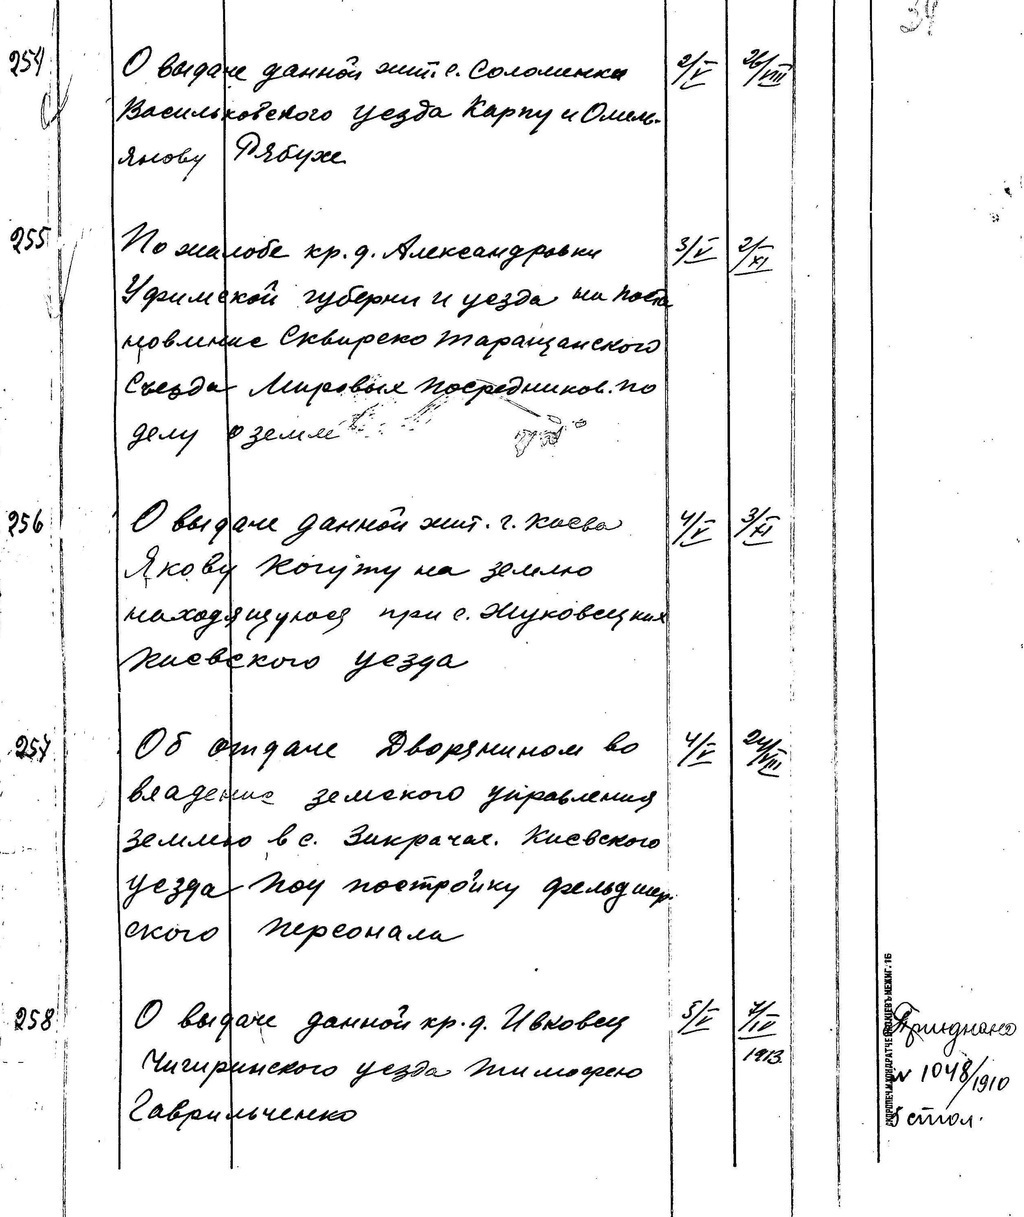 34
254 О выдаче данной жит. с. Соломенки 2/V 26/VIII
Васильковского уезда Карпу и Омель-
янову Рябухе
255 По жалобе кр. д. Александровки 3/V 2/XI
Уфимской губерни и уезда на поста
новление Сквирско Таращанского
Съезда Мировых посредников. по
делу о земле
256 О выдаче данной жит. г. Киева 4/V 3/XI
Якову Когуту на землю
находящуюся при с. Жуковецких
Киевского уезда
257 Об отдаче Дворянином во 4/V 24/VIII
владение земского управления
землю в с. Зикрачах. Киевского
уезда под постройку фельдшер-
ского персонала
258 О выдаче данной кр. д. Ивковец 5/V 7/IV
1913.
Чигиринского уезда Тимофею
Гаврильченко
Приєднано
N 1048/1910
5 стол.